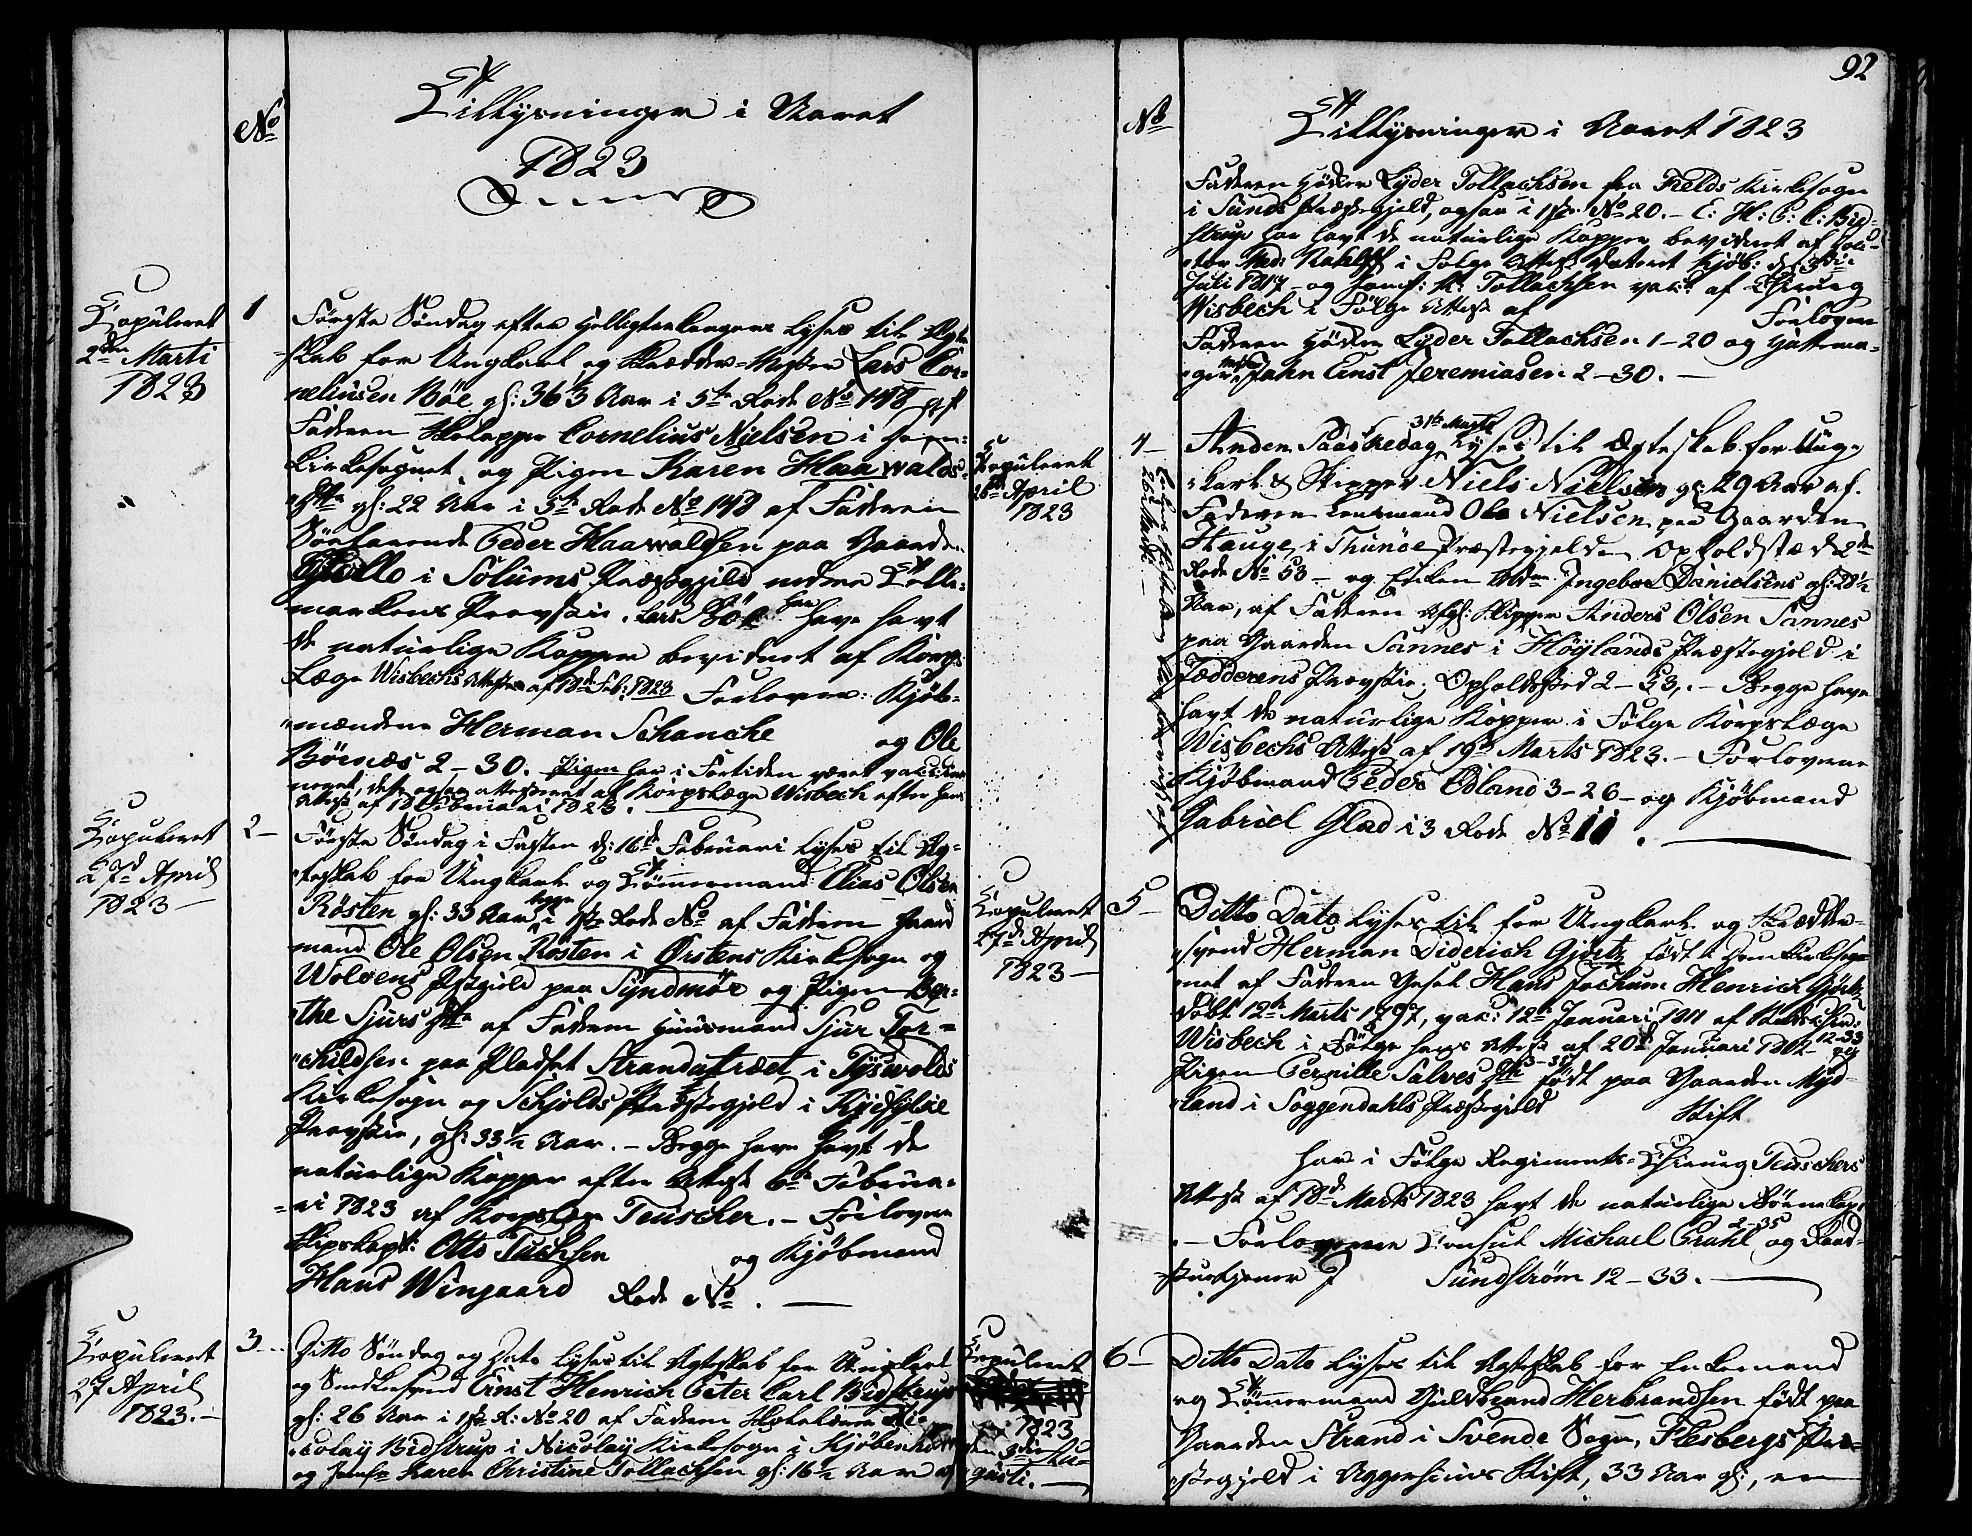 No
Tillysninger i Aaret
1823
Copuleret
2den Marti
1823
1
Første Søndag efter Helligtrekongers lyses til Ægte-
skab for Ungkarl og Skrædder-Mester Lars Cor-
neliusen Böe gl: 36 Aar i 5te Rode No 148 af
Faderen Cornelius Nielsen i
Kirkesognet, og Pigen Karen Haawalds-
dtr gl: 22 Aar i 5te Rode No 148 af Faderen
Peder Haawaldsen paa Gaarden
i Solums Præstegjeld nedre Telle-
markens Provstie. Lars Böe har have havt
de naturlige Kopper bevidnet af Korps
Læge Wisbechs Attest af 18de Feb: 1823 Forlovere: Kjöb-
mændene Herman Schanche og Ole
Börnæs 2-30. Pigen har i Fortiden været vaccine-
ret, dette ogsaa attesteret af Korpslæge Wisbech efter hans
Attest af 18 Februari 1823.
Copuleret
27de April
1823
2
Første Søndag i Fasten d: 16de Februari lyses til Æg-
teskab for Ungkarl og Tømmermand Elias Olsen
Rösten gl: 33 Aar i 1ste Rode No af Faderen Gaard
mand Ole Olsen Rosten i Örstens Kirkesogn og
Woldens Pstgield paa Syndmör og Pigen Ber-
the Sjurs Dtr af Faderen Huusmand Sjur Tor-
childsen paa Pladset Strandstrædet i Tyswolds
Kirkesogn og Schjolds Præstegjeld i Ryefylke
Provstie, gl: 33½ Aar. - Begge have havt de
naturlige Kopper efter Attest 6te Februa-
ri 1823 af Korpslæge Teuscher. - Forlovere
Skipskapt: Otto Tuchsen og Kjöbmand
Hans Wingaard Rode No.
Copuleret
27 April
1823.
3
Ditto Søndag og Dato lyses til Ægteskab for Ungkarl
og Snedkersvend Ernst Henrich Peter Carl Bidstrup
gl: 26 Aar i 1ste R: No 20 af Faderen Ni-
colay Bidstrup i Nicolay Kirkesogn i Kjöbenhavn
og Jomfr Karen Christine Tollachsen gl: 16½ Aar af
92
No
Tillysninger i Aaret 1823
Faderen Höker Lyder Tollachsen fra Fields Kirkesogn
i Sunds Præstegjeld, ogsaa i 1ste No 20. - E: H: P: C: Bid-
strup har havt de naturlige Kopper bevidnet af Doc-
tor Med: Kahlff i Følge Attest dateret Kjöb: d 3die
Juli 1817 - og Jomf: K: Tollachsen vac: af Chirurg
Wisbech i Følge Attest af Forlovere
Faderen Höker Lyder Tollachsen 1-20 og Hattema-
ger Jahn Ernst Jeremiasen 2-30. -
Copuleret
26de April
1823
4
Anden Paaskedag 31te Marts lyses til Ægteskab for Ung-
karl & Skipper Niels Nielsen gl: 29 Aar af
Faderen Lensmand Ole Nielsen paa Gaarden
Hauge i Thunöe Præstegjeld, Opholdsted 2de
Rode No 53 - og Enken Mdm Ingebor Danielsens gl: 28½
Aar, af Faderen Afgl: Skipper Anders Olsen Sannes
paa Gaarden Sannes i Höylands Præstegjeld i
Jædderens Provstie. Opholdssted 2-53,. - Begge have
havt de naturlige Kopper i Følge Korpslæge
Wisbechs Attest af 19de Marts 1823. - Forlovere
Kjöbmand Peder Ödland 3-26 - og Kjöbmand
Gabriel Glad i 3 Rode No 11.
Copuleret
27de April
1823
5
Ditto Dato lyses til for Ungkarl og Skrædder-
svend Herman Diderich Gjörtz født i Domkirkesog-
net af Faderen Hans Jochum Henrich Görtz
döbt 12te Marts 1797, vac: 12te Januari 1811 af
Wisbech i Følge hans Attest af 20de Januari 1812 - 12-33 og
Pigen Pernille Salves Dtr 3-3 født paa Gaarden Myd-
land i Soggendahls Præstegjeld Stift
har i Følge Regiments-Chirurg Teuschers
Attest af 18de Marts 1823 havt de naturlige Börnekop
. - Forlovere Consul Michael Crahl 2-35 og Raad-
stuetjener J Sundström 12-33.
Copuleret
1823
den 3die Au-
gusti.
6
Ditto Dato lyses til Ægteskab for Enkemand
og Tømmermand Guldbrand Herbrandsen født paa
Gaarden Strand i Svende Sogn, Flesbergs Præ-
stegjeld i Aggershuus Stift, 33 Aar gl:, en